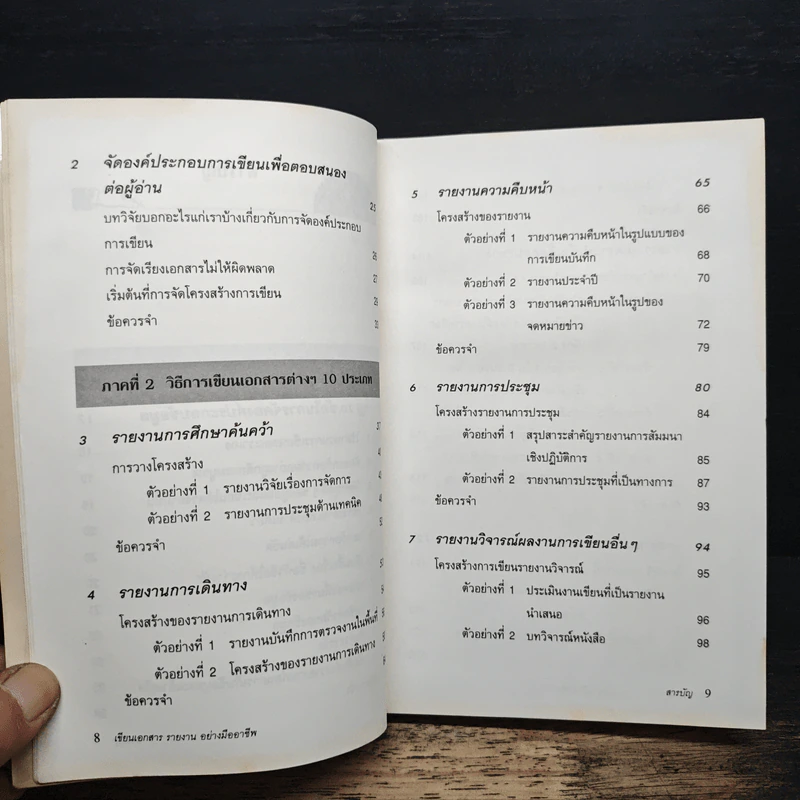 2 จัดองค์ประกอบการเขียนเพื่อตอบสนอง
ต่อผู้อ่าน 25
บทวิจัยบอกอะไรแก่เราบ้างเกี่ยวกับการจัดองค์ประกอบ
การเขียน 26
การจัดเรียงเอกสารไม่ให้ผิดพลาด 27
เริ่มต้นที่การจัดโครงสร้างการเขียน
ข้อควรจำ
ภาคที่ 2 วิธีการเขียนเอกสารต่างๆ 10 ประเภท
3 รายงานการศึกษาค้นคว้า
การวางโครงสร้าง
ตัวอย่างที่ 1 รายงานวิจัยเรื่องการจัดการ
ตัวอย่างที่ 2 รายงานการประชุมด้านเทคนิค
ข้อควรจำ
4 รายงานการเดินทาง
โครงสร้างของรายงานการเดินทาง
ตัวอย่างที่ 1 รายงานบันทึกการตรวจงานในพื้นที่
ตัวอย่างที่ 2 โครงสร้างของรายงานการเดินทาง
ข้อควรจำ
8 เขียนเอกสาร รายงาน อย่างมืออาชีพ
5 รายงานความคืบหน้า 65
โครงสร้างของรายงาน 66
ตัวอย่างที่ 1 รายงานความคืบหน้าในรูปแบบของ
การเขียนบันทึก 68
ตัวอย่างที่ 2 รายงานประจำปี 70
ตัวอย่างที่ 3 รายงานความคืบหน้าในรูปของ
จดหมายข่าว 72
ข้อควรจำ 79
6 รายงานการประชุม 80
โครงสร้างรายงานการประชุม 84
ตัวอย่างที่ 1 สรุปสาระสำคัญรายงานการสัมมนา
เชิงปฏิบัติการ 85
ตัวอย่างที่ 2 รายงานการประชุมที่เป็นทางการ 87
ข้อควรจำ 93
7 รายงานวิจารณ์ผลงานการเขียนอื่นๆ 94
โครงสร้างการเขียนรายงานวิจารณ์ 95
ตัวอย่างที่ 1 ประเมินงานเขียนที่เป็นรายงาน
นำเสนอ 96
ตัวอย่างที่ 2 บทวิจารณ์หนังสือ 98
สารบัญ 9